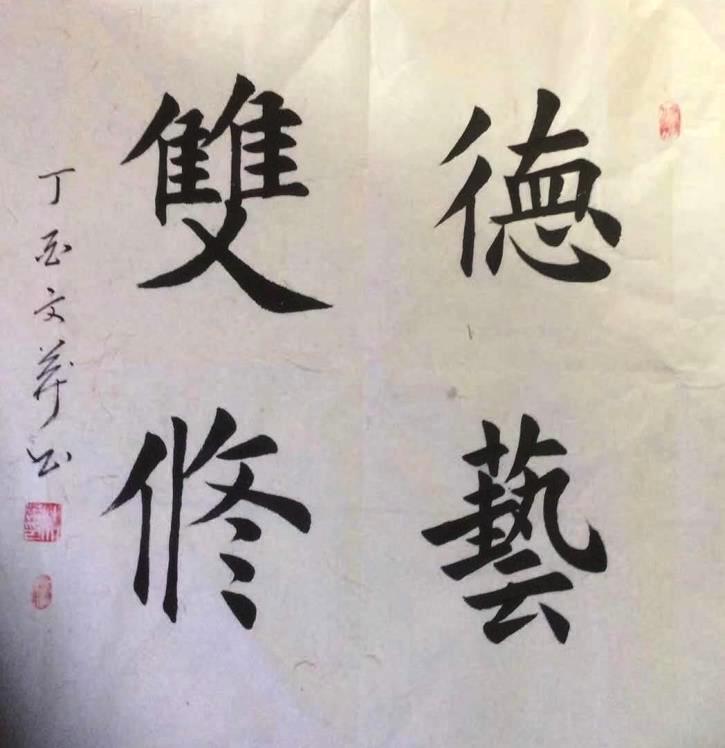 德藝
雙修
丁酉文華书